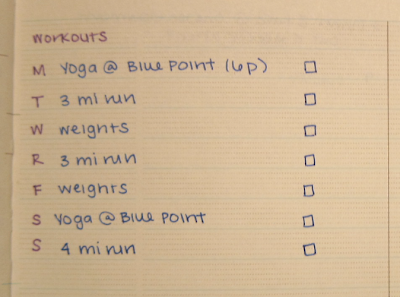 workouts
M Yoga @ Blue Point (6p)
T 3 mi run
W weights
R 3 mi run
F weights
S Yoga @ Blue Point
S 4 mi run